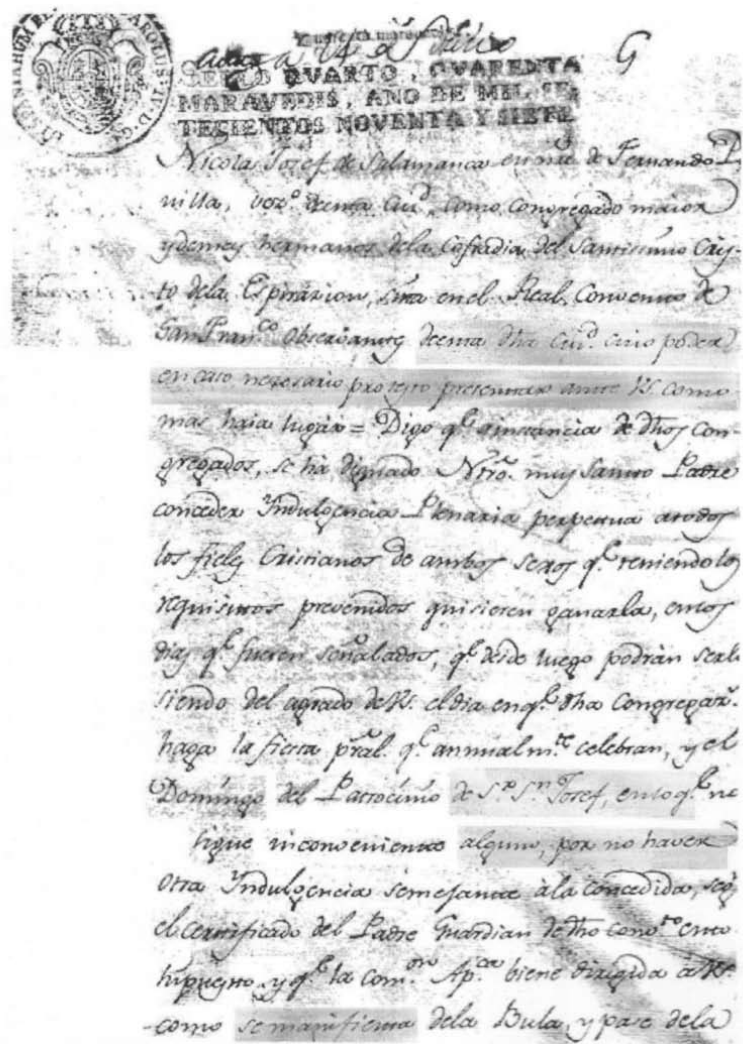 HISPANIARUM R CAROLUS IV D G
a 14 Julio
G
SELLO QVARTO, QVARENTA
MARAVEDIS, AÑO DE MIL SE-
TECIENTOS NOVENTA Y SIETE
Nicolas Josef de Salamanca en nre de Fernando
villa, vezº. de esta Ciud. como congregado maior
y demas hermanos de la Cofradia del Santissimo Cris-
to de la Espirazion, sita en el Real Convento de
San Franco. Observantes de esta dha Ciud. cuio poder
en caso nezesario protesto presentar ante VS. como
mas haia lugar = Digo qe. a instancia de dhos Con-
gregados, se ha dignado Ntro. muy Santo Padre
conceder Yndulgencia Plenaria perpetua a todos
los fieles Cristianos de ambos sexos qe. teniendo los
requisitos prevenidos quisieren ganarla, en los
dias qe. fueren señalados, qe. desde luego podrán serlo
siendo del agrado de VS. el dia en qe. dha Congregazn.
haga la fiesta pral. qe. annualmte. celebran, y el
Domingo del Patrocinio de Sr. Sn. Josef, en lo qe. no
sigue inconveniente alguno, por no haver
otra Yndulgencia semejante à la concedida, segn
el certificado del Padre Guardian de dho convto
supuesto, y qe. la Comon. Apca. biene dirigida à VS.
como se manifiesta de la Bula, y pase de la